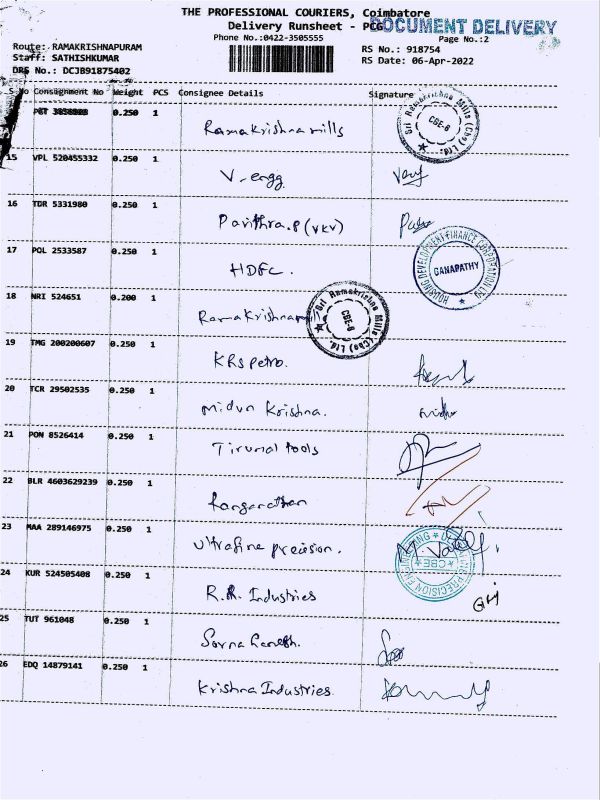 THE PROFESSIONAL COURIERS, Coimbatore
Delivery Runsheet - PCG
DOCUMENT DELIVERY
Phone No.:0422-3505555
Page No.:2
Route: RAMAKRISHNAPURAM
RS No.: 918754
Staff: SATHISHKUMAR
RS Date: 06-Apr-2022
DRS No.: DCJB91875402
S No Consignment No Weight PCS Consignee Details Signature
PGT 0.250 1
Ramakrishna mills
Sri Ramakrishna Mills (Cbe) Ltd. CBE-6
15 VPL 520455332 0.250 1
V-engg
16 TDR 5331980 0.250 1
Pavithra.P (VKV)
17 POL 2533587 0.250 1
HDFC.
HOUSING DEVELOPMENT FINANCE CORPORATION LTD GANAPATHY
18 NRI 524651 0.200 1
Ramakrishna
Sri Ramakrishna Mills (Cbe) Ltd. CBE-6
19 TMG 200200607 0.250 1
KRS petro.
20 TCR 29502535 0.250 1
Midun Krishna.
21 PON 8526414 0.250 1
Tirumal tools
22 BLR 4603629239 0.250 1
Ranganathan
23 MAA 289146975 0.250 1
Ultrafine precision.
PRECISION ENGINEERING CBE
24 KUR 524505408 0.250 1
R.R. Industries
25 TUT 961048 0.250 1
Sorna Ganesh.
26 EDQ 14879141 0.250 1
Krishna Industries